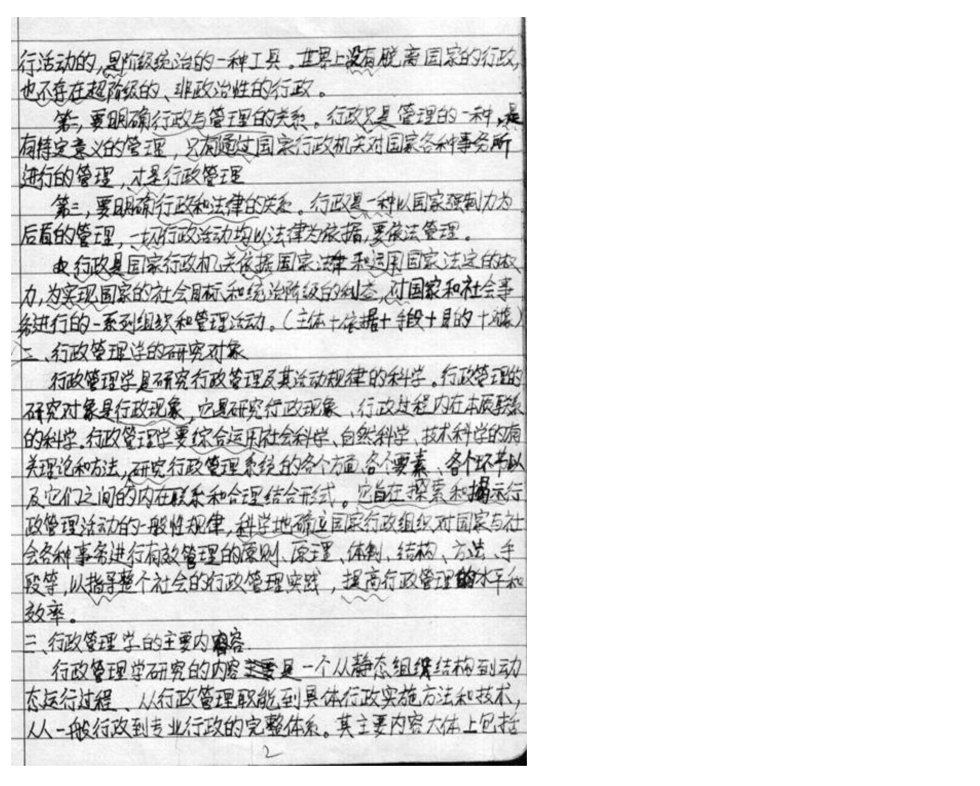 行活动的,是阶级统治的一种工具。世界上没有脱离国家的行政,
也不存在超阶级的、非政治性的行政。
第二,要明确行政与管理的关系。行政只是管理的一种,是
有特定意义的管理,只有通过国家行政机关对国家各种事务所
进行的管理,才是行政管理
第三,要明确行政和法律的关系。行政是一种以国家强制力为
后盾的管理,一切行政活动均以法律为依据,要依法管理。
行政是国家行政机关依据国家法律和运用国家法定的权
力,为实现国家的社会目标和统治阶级的利益,对国家和社会事
务进行的一系列组织和管理活动。(主体+依据+手段+目的+对象)
二、行政管理学的研究对象
行政管理学是研究行政管理及其活动规律的科学。行政管理的
研究对象是行政现象,它是研究行政现象、行政过程内在本质联系
的科学。行政管理学要综合运用社会科学、自然科学、技术科学的有
关理论和方法,研究行政管理系统的各个方面、各个要素、各个环节以
及它们之间的内在联系和合理结合形式。它旨在探索和揭示行
政管理活动的一般性规律,科学地确立国家行政组织对国家与社
会各种事务进行有效管理的原则、原理、体制、结构、方法、手
段等,以指导整个社会的行政管理实践,提高行政管理的水平和
效率。
三、行政管理学的主要内容
行政管理学研究的内容主要是一个从静态组织结构到动
态运行过程、从行政管理职能到具体行政实施方法和技术,
从一般行政到专业行政的完整体系。其主要内容大体上包括
2